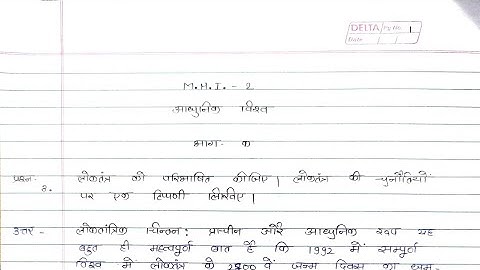 DELTA Pg No. 1
Date
M.H.I. - 2
आधुनिक विश्व
भाग - क
प्रश्न- लोकतंत्र को परिभाषित कीजिए । लोकतंत्र की चुनौतियों
3. पर एक टिप्पणी लिखिए ।
उत्तर - लोकतांत्रिक चिन्तन : प्राचीन और आधुनिक रूप यह
बहुत ही महत्वपूर्ण बात है कि 1992 में सम्पूर्ण
विश्व में लोकतंत्र के 2500वें जन्म दिवस का